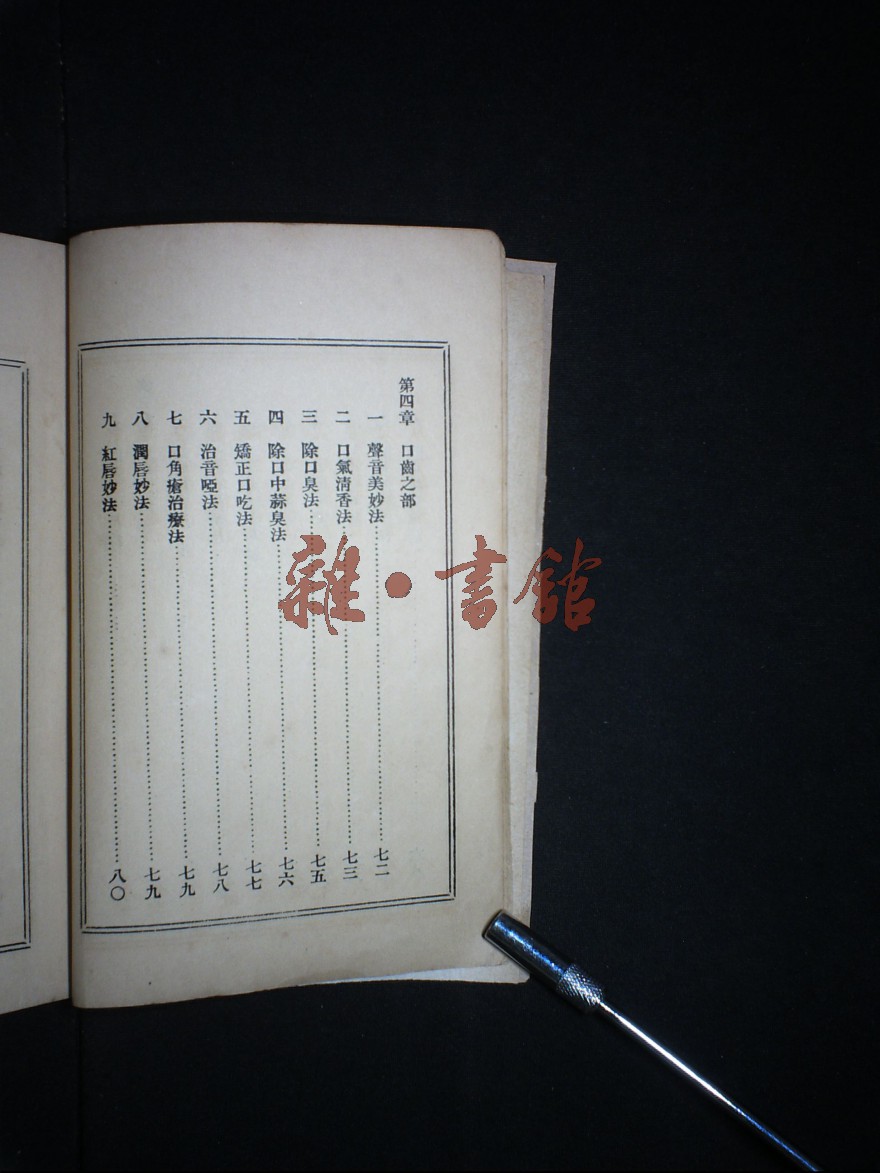 第四章 口齒之部
一 聲音美妙法…………七二
二 口氣淸香法…………七三
三 除口臭法…………七五
四 除口中蒜臭法…………七六
五 矯正口吃法…………七七
六 治音啞法…………七八
七 口角瘡治療法…………七九
八 潤唇妙法…………七九
九 紅唇妙法…………八〇
雜·書館